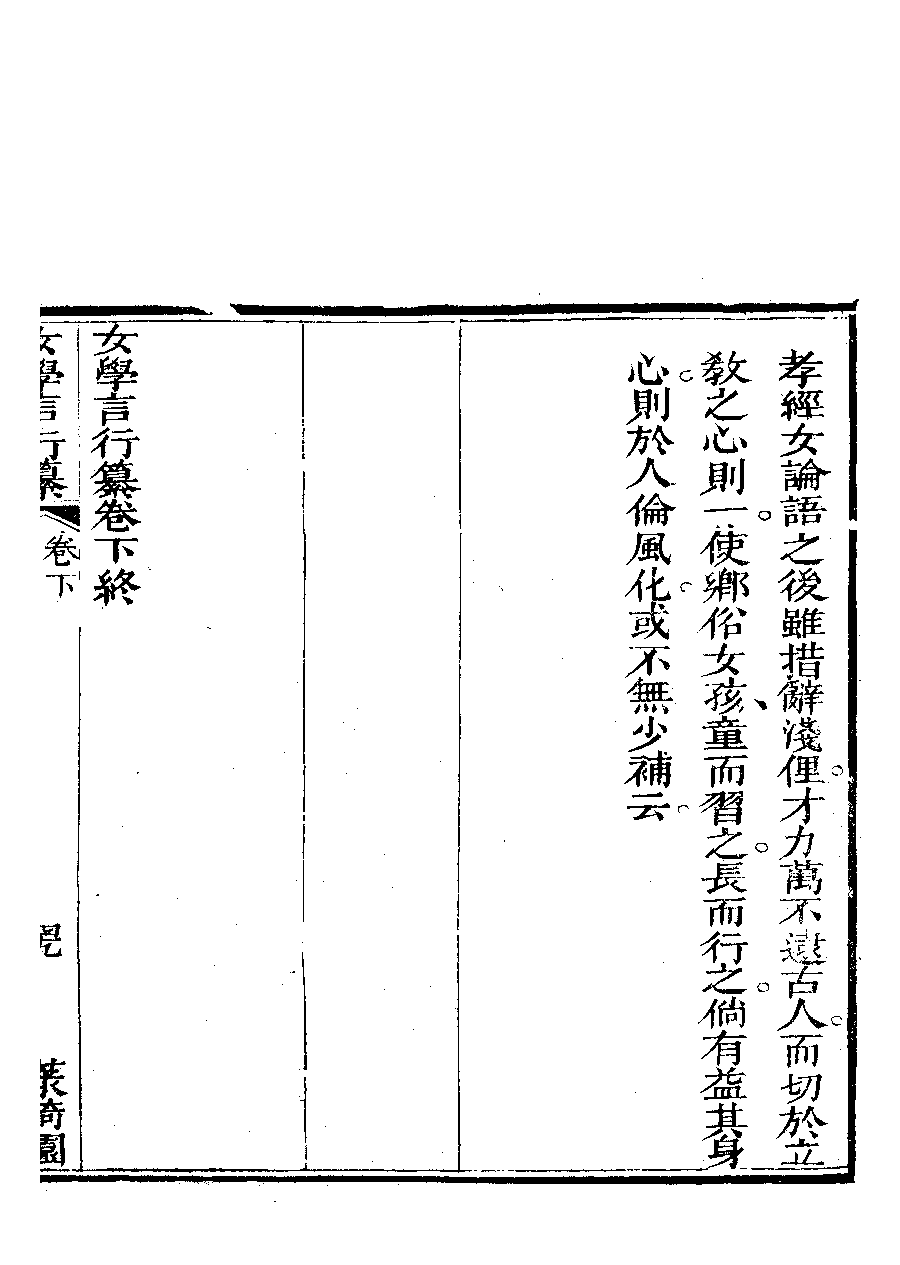 孝經女論語之後雖措辭淺俚。才力萬不逮古人。而切於立
教之心則一。使鄉俗女孩、童而習之。長而行之。倘有益其身
心。則於人倫風化。或不無少補云。
女學言行纂卷下終
女學言行纂 卷下